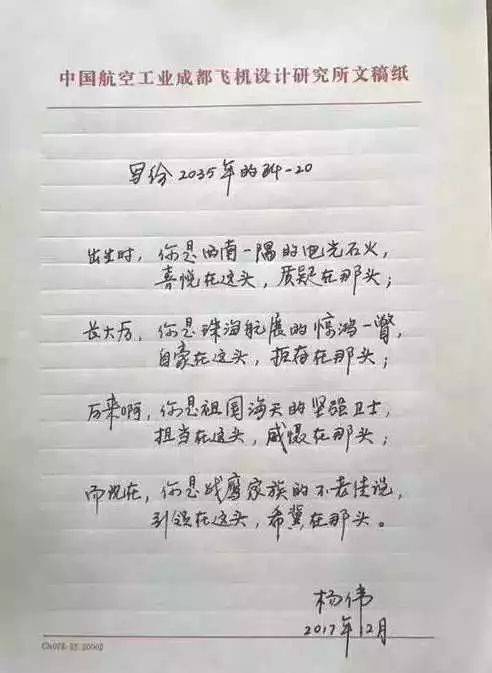 中国航空工业成都飞机设计研究所文稿纸
写给2035年的歼-20
出生时，你是西南一隅的电光石火，
喜悦在这头，质疑在那头；
长大后，你是珠海航展的惊鸿一瞥，
自豪在这头，拒存在那头；
历来啊，你是祖国海天的坚强卫士，
担当在这头，威慑在那头；
而现在，你是战鹰家族的不老传说，
引领在这头，希冀在那头。
杨伟
2017年12月